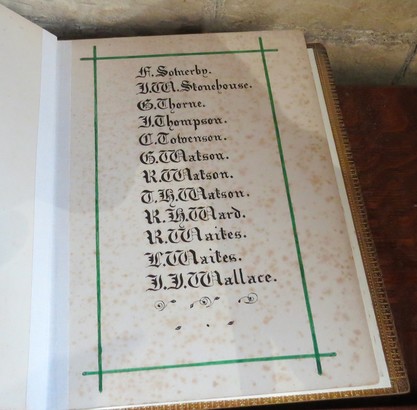 F. Sotherby.
J.W. Stonehouse.
G. Thorne.
J. Thompson.
C. Towenson.
G. Watson.
R. Watson.
T.H. Watson.
R.H. Ward.
R. Waites.
L. Waites.
J.J. Wallace.